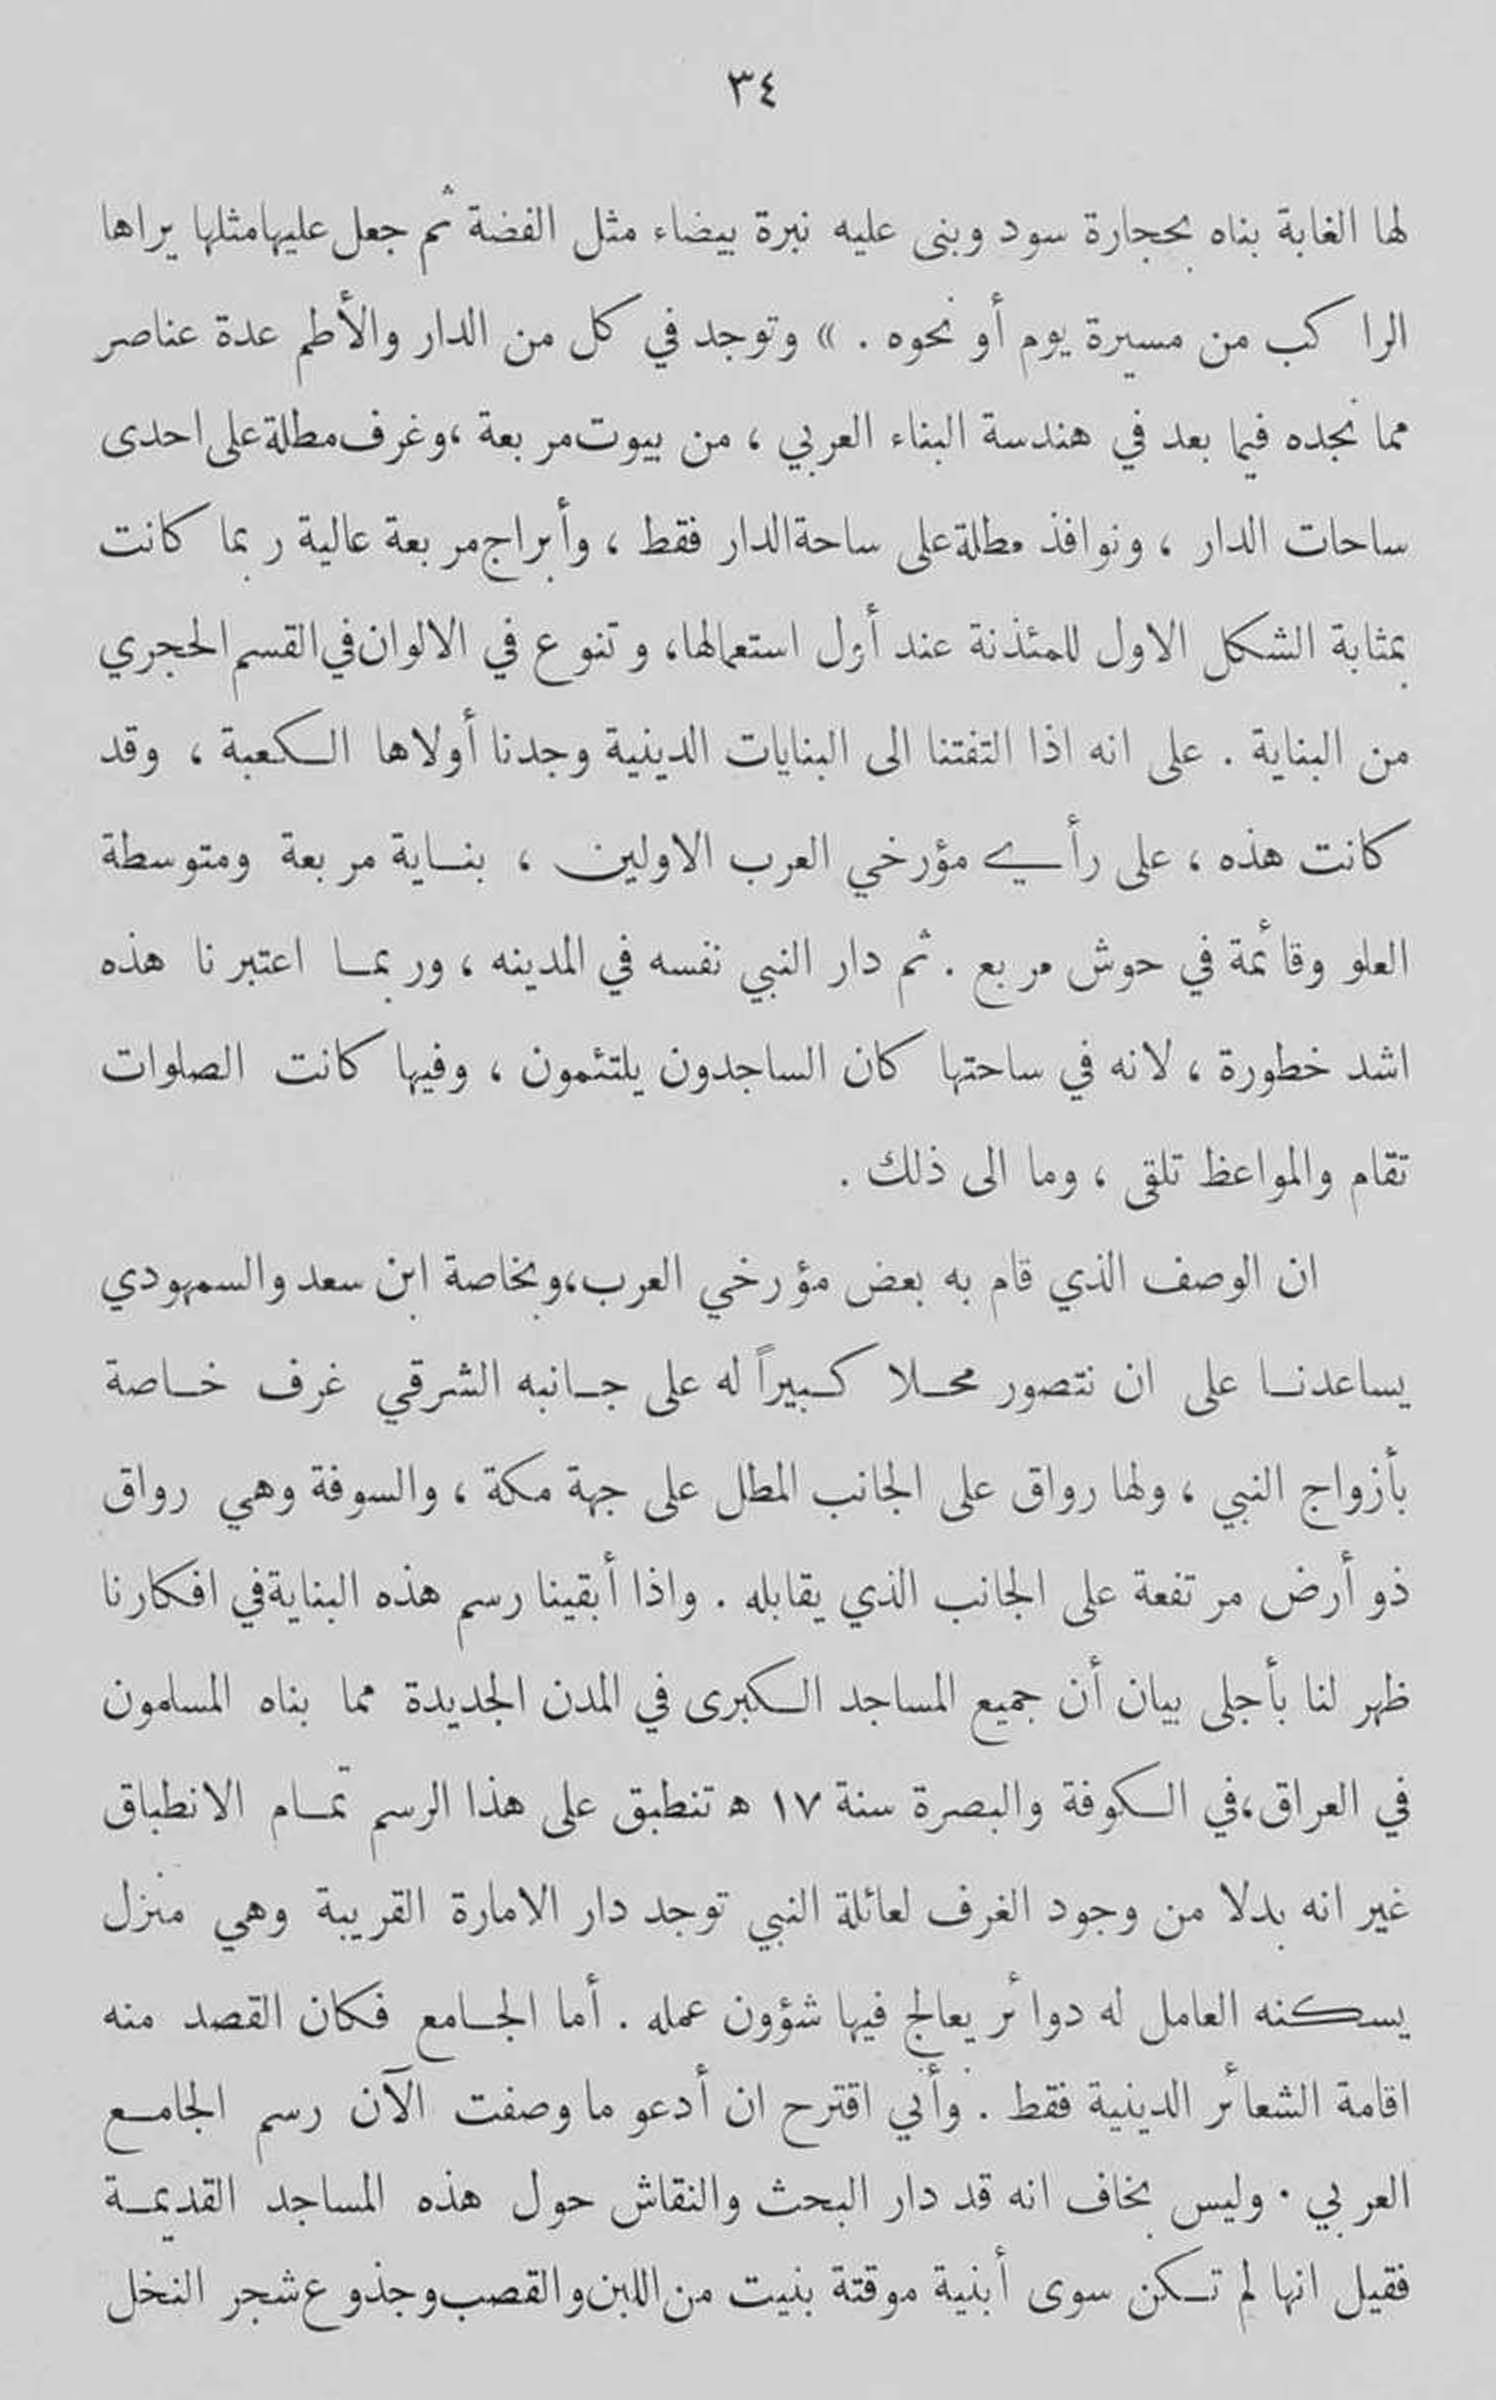 ٣٤
لها الغابة بناه بحجارة سود وبنى عليه نبرة بيضاء مثل الفضة ثم جعل عليها مثلها يراها
الراكب من مسيرة يوم أو نحوه . » وتوجد في كل من الدار والأطم عدة عناصر
مما نجده فيما بعد في هندسة البناء العربي ، من بيوت مربعة ، وغرف مطلة على احدى
ساحات الدار ، ونوافذ مطلة على ساحة الدار فقط ، وأبراج مربعة عالية ربما كانت
بمثابة الشكل الاول للمئذنة عند أول استعمالها ، وتنوع في الالوان في القسم الحجري
من البناية . على انه اذا التفتنا الى البنايات الدينية وجدنا أولاها الكعبة ، وقد
كانت هذه ، على رأي مؤرخي العرب الاولين ، بناية مربعة ومتوسطة
العلو وقائمة في حوش مربع . ثم دار النبي نفسه في المدينه ، وربما اعتبرنا هذه
اشد خطورة ، لانه في ساحتها كان الساجدون يلتئمون ، وفيها كانت الصلوات
تقام والمواعظ تلقى ، وما الى ذلك .
ان الوصف الذي قام به بعض مؤرخي العرب ، وبخاصة ابن سعد والسمهودي
يساعدنا على ان نتصور محلا كبيراً له على جانبه الشرقي غرف خاصة
بأزواج النبي ، ولها رواق على الجانب المطل على جهة مكة ، والسوفة وهي رواق
ذو أرض مرتفعة على الجانب الذي يقابله . واذا أبقينا رسم هذه البناية في افكارنا
ظهر لنا بأجلى بيان أن جميع المساجد الكبرى في المدن الجديدة مما بناه المسلمون
في العراق ، في الكوفة والبصرة سنة ١٧ ه تنطبق على هذا الرسم تمام الانطباق
غير انه بدلا من وجود الغرف لعائلة النبي توجد دار الامارة القريبة وهي منزل
يسكنه العامل له دوائر يعالج فيها شؤون عمله . أما الجامع فكان القصد منه
اقامة الشعائر الدينية فقط . وأني اقترح ان أدعو ما وصفت الآن رسم الجامع
العربي . وليس بخاف انه قد دار البحث والنقاش حول هذه المساجد القديمة
فقيل انها لم تكن سوى أبنية موقتة بنيت من اللبن والقصب وجذوع شجر النخل